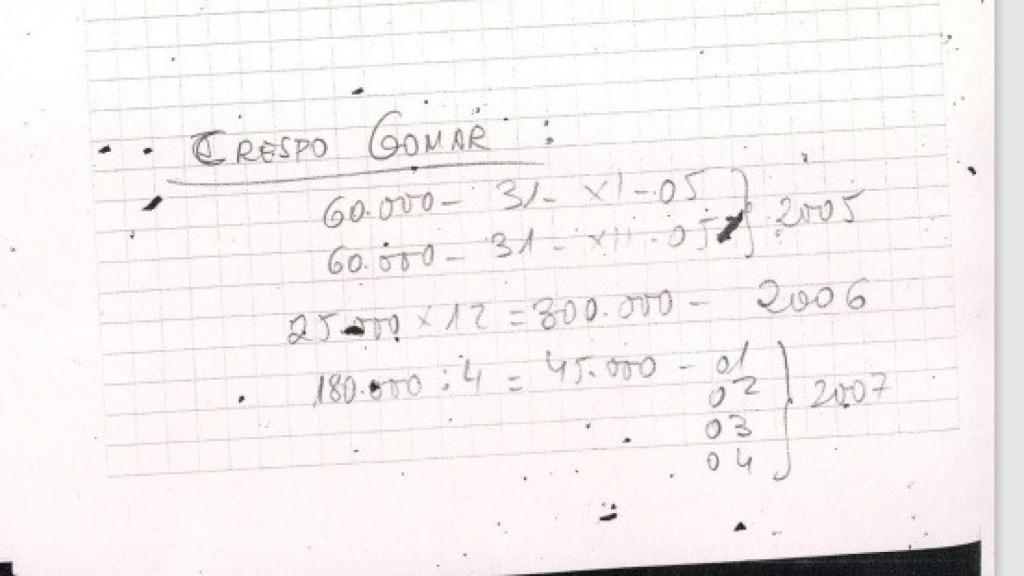 CRESPO GOMAR :
60.000 - 31 - XI - 05
60.000 - 31 - XII - 05 } 2005
25.000 x 12 = 300.000 - 2006
180.000 : 4 = 45.000 - 01
02
03
04 } 2007